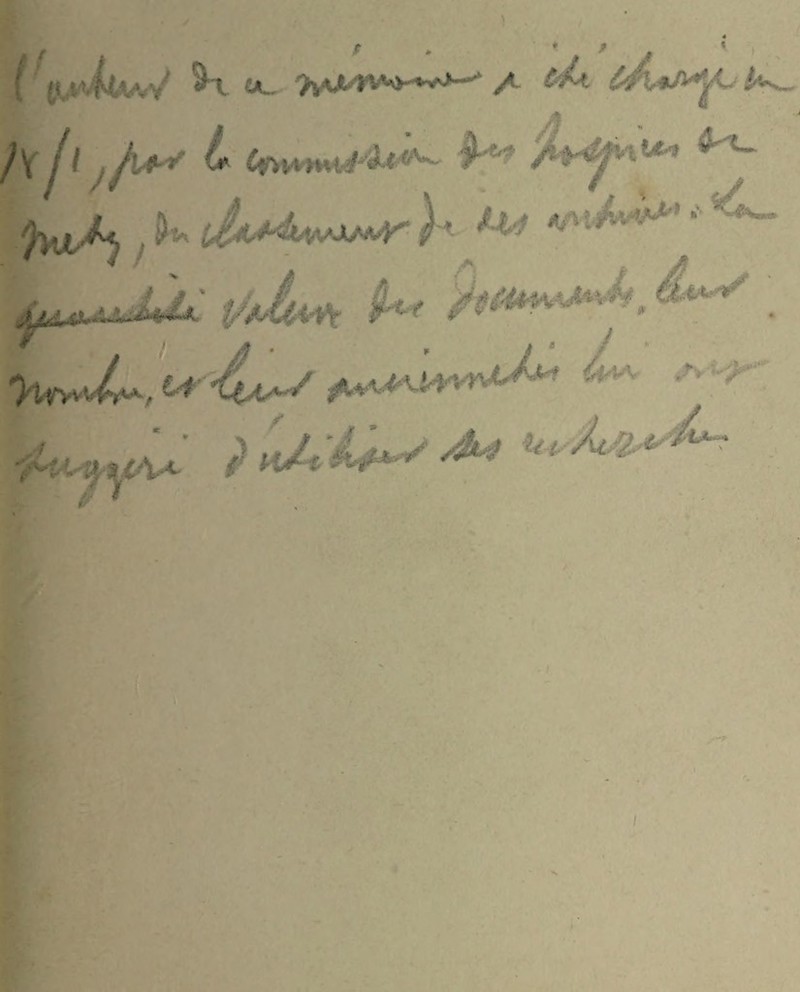 l'auteur de ce mémoire a été chargé en
par la commission des hospices de
Metz, du classement de ses archives. La
quantité valeur des documents, leur
nombre, et leur anciennetés lui ont
suggéré d'utiliser ses recherche